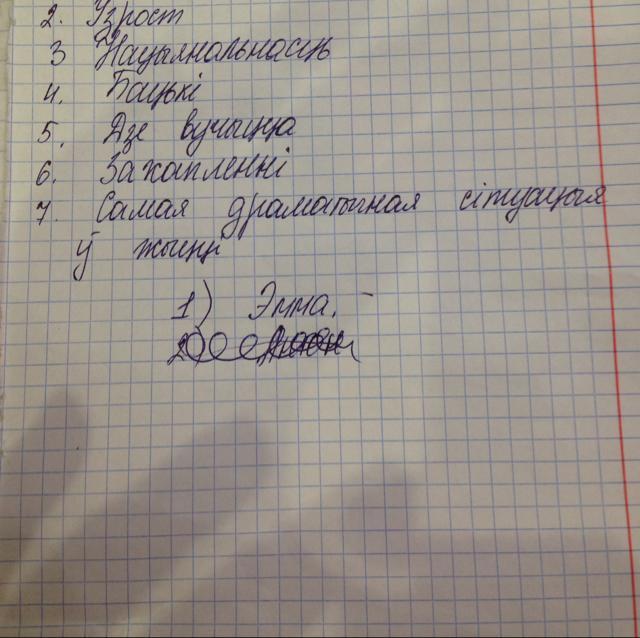 2. Узрост
3 Нацыянальнасць
4. Бацькі
5. Дзе вучыцца
6. Захапленні
7. Самая драматычная сітуацыя
ў жыцці
1) Эмма. -
2)